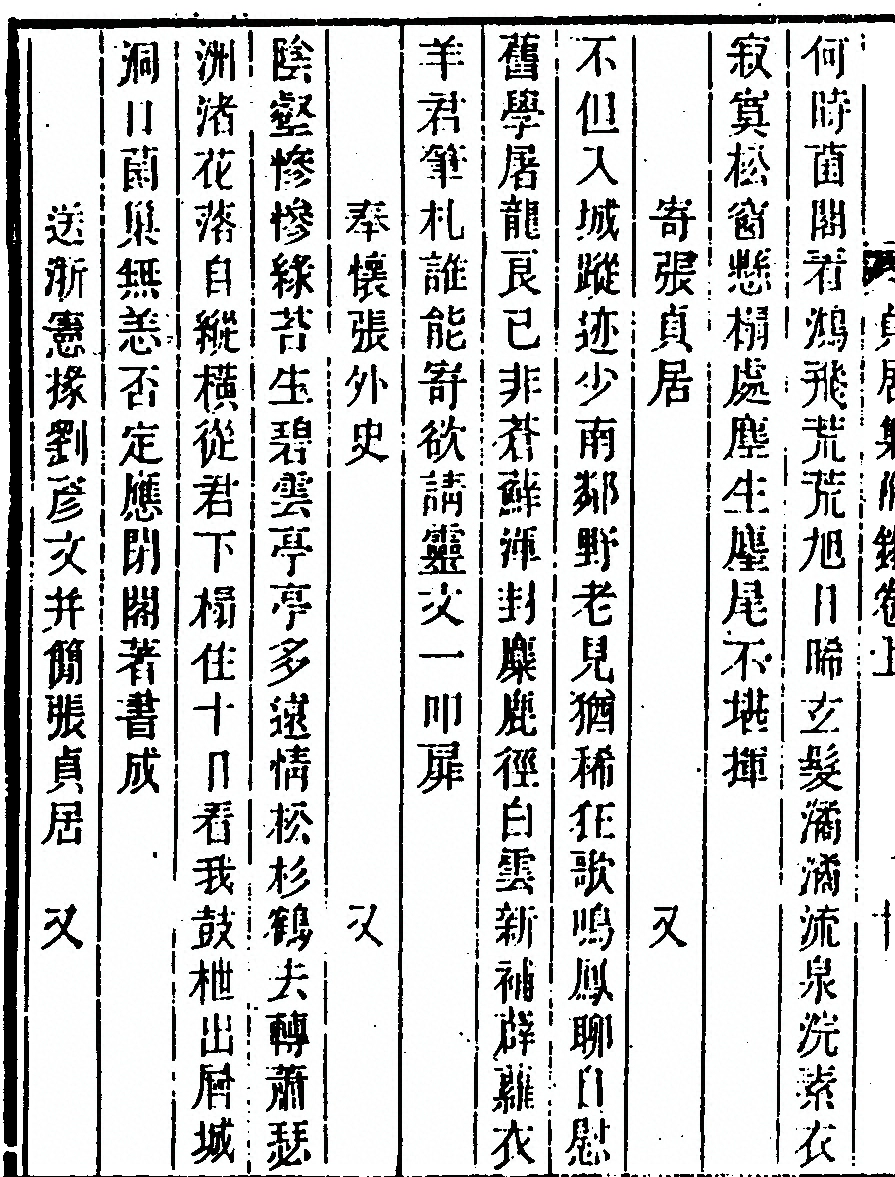 貞居集附錄卷上 十
何時菌閣看鴻飛荒荒旭日晞玄髮潏潏流泉浣素衣
寂寞松窗懸榻處塵生麈尾不堪揮
寄張貞居 又
不但入城蹤迹少南鄰野老見猶稀狂歌鳴鳳聊自慰
舊學屠龍良已非蒼蘚渾封麋鹿徑白雲新補薜蘿衣
羊君筆札誰能寄欲請靈文一叩扉
奉懷張外史 又
陰壑慘慘綠苔生碧雲亭亭多遠情松杉鶴去轉蕭瑟
洲渚花落自縱橫從君下榻住十日看我鼓枻出層城
洞口菌巢無恙否定應閉閣著書成
送浙憲掾劉彥文并簡張貞居 又